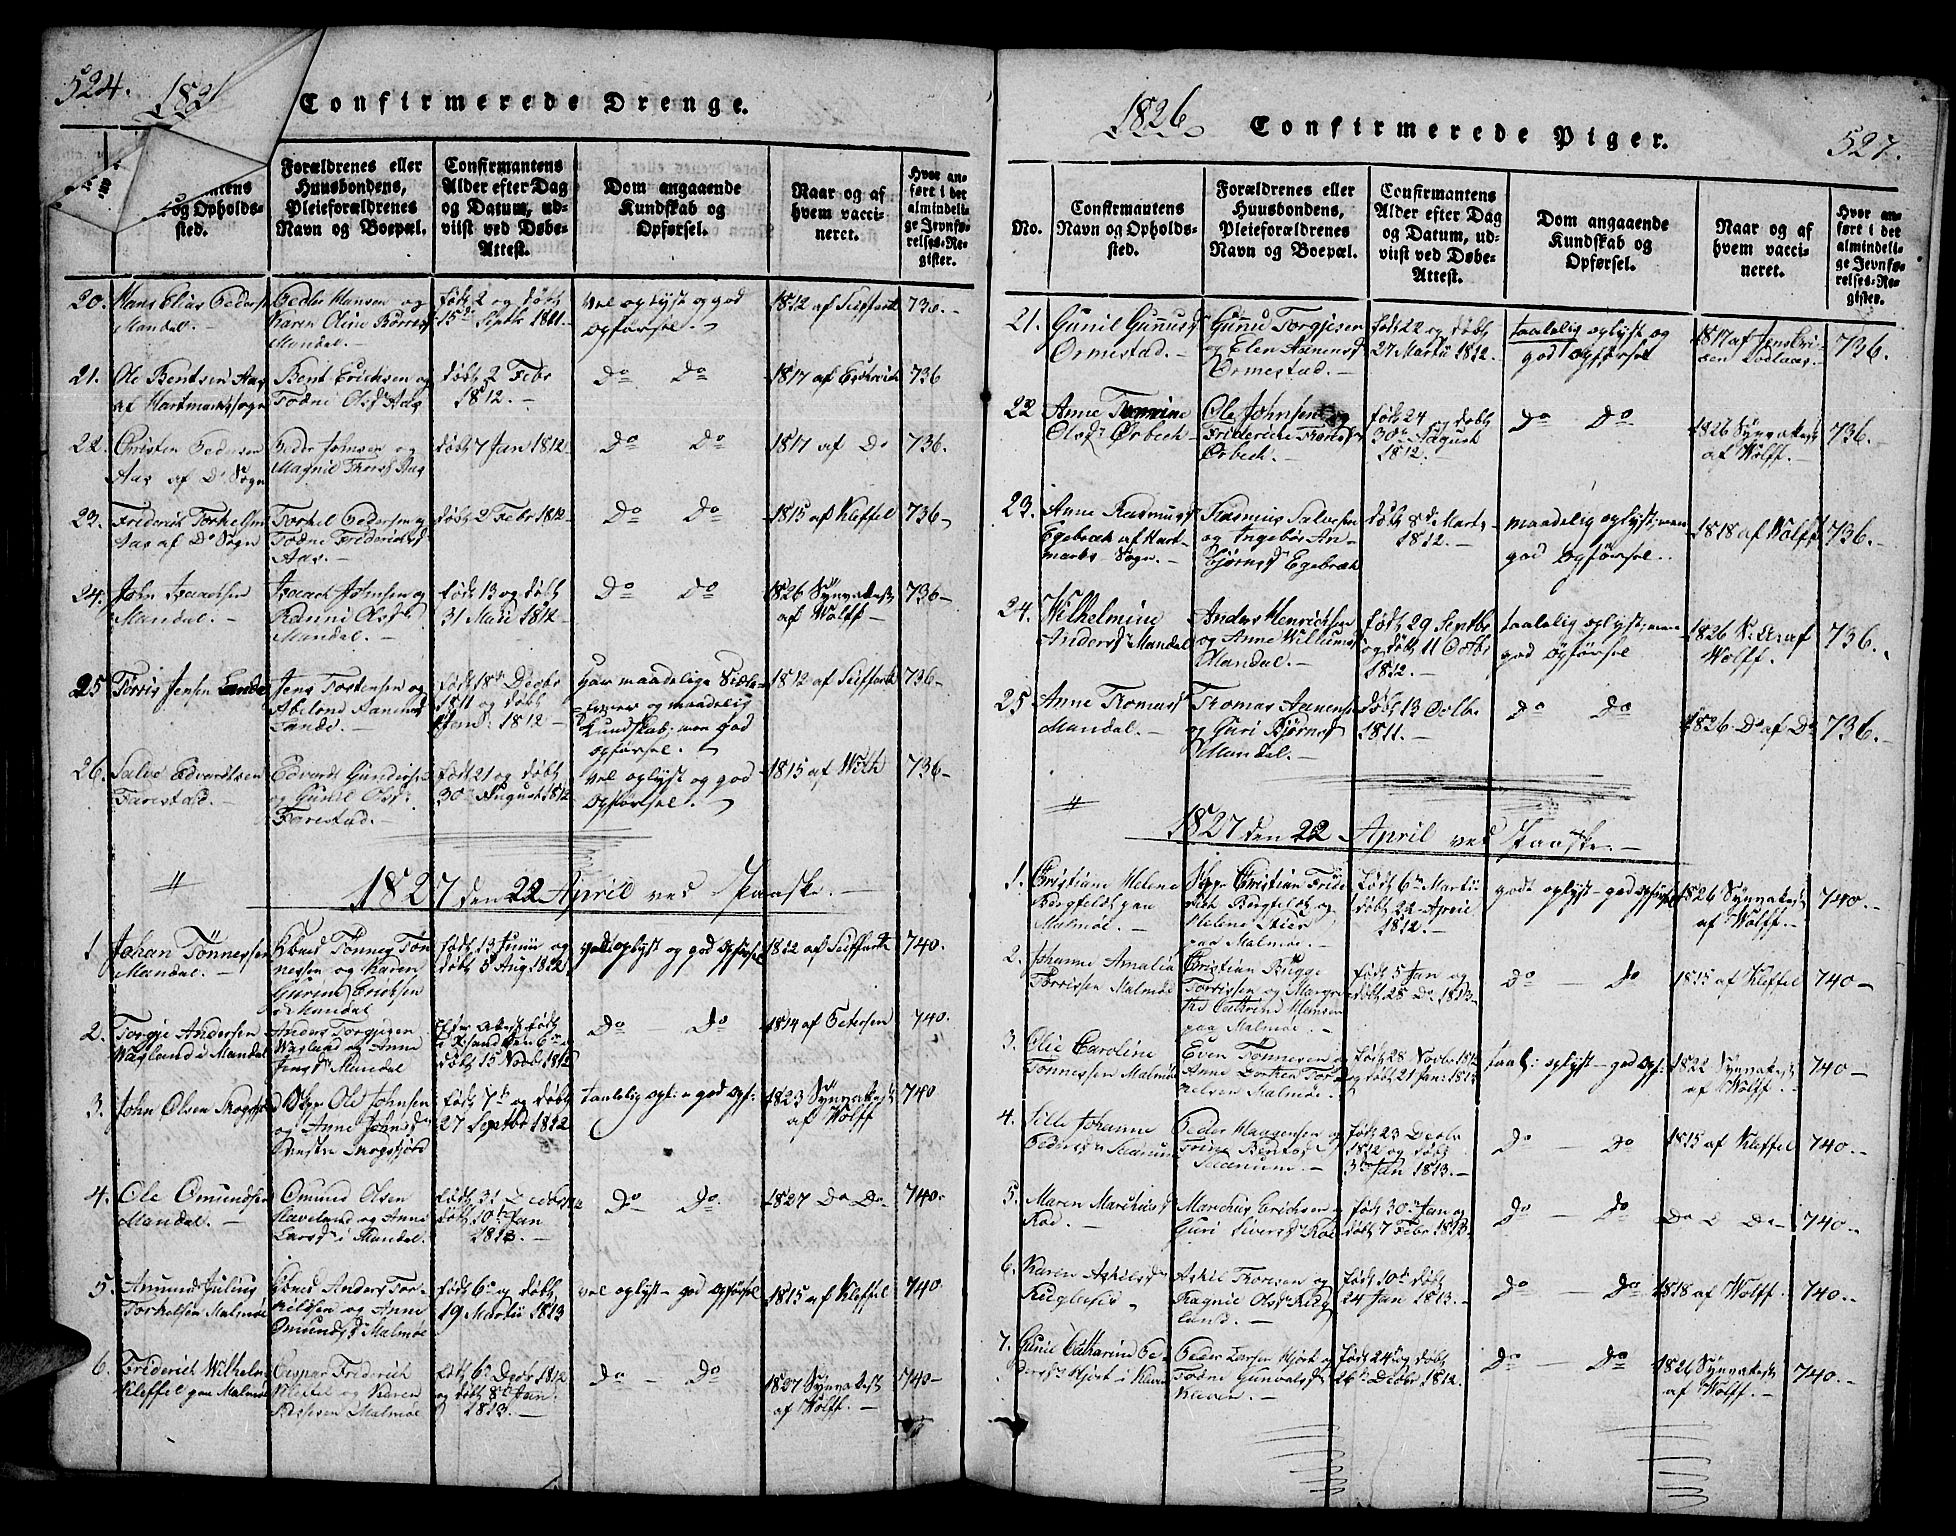 524.
182
Confirmerede Drenge.
Forældrenes eller
Huusbondens,
Pleieforældrenes
Navn og Boepæl.
Confirmantens
Alder efter Dag
og Datum, ud-
viist ved Døbe-
Attest.
Dom angaaende
Kundskab og
Opførsel.
Naar og af
hvem vacci-
neret.
Hvor an-
ført i det
almindeli-
ge Jevnfø-
relses-Re-
gister.
og Opholds-
sted.
20.
Hans Elias Peders
Mandal. —
Peder Hansen og
Karen Oline
Mandal. —
født 2 og døbt
15de Septbr 1811.
vel oplyst og god
opførsel. —
1812 af Seiffart
736.
21.
Ole Bentsen Aas
af Hartmarks sogn
Bent Erichsen og
Todne Olsdr Aas
døbt 2 Febr
1812. —
Do Do
1817 af
736
22.
Christen Pedersen
Aas af Do Sogn
Peder Jonsen og
Magnil Aas
døbt 7 Jan 1812
Do Do
1817 af Do
736.
23.
Friderich Torkelsen
Aas af Do Sogn
Torkel Pedersen og
Todne Friderichsd
Aas. —
døbt 2 Febr 1812
Do Do
1815 af Kleffel
736 —
24.
John Isaachsen
Mandal. —
Isaach Johnsen og
Olsdr
Mandal. —
født 13 og døbt
31 Mai 1812 —
Do Do
1826 Synvakst
af Wolff —
736 —
25
Torris Jensen Lande
Jens Tostensen og
Abelone Aanensd
Lande. —
født 18de Decbr
1811 og døbt
Jan: 1812 —
har maadelige Siæle-
evner og maadelig
Kundskab, men god
opførsel. —
1812 af Seiffart
736 —
26.
Salve Edvardtsen
Farestad. —
Edvardt Gunders
og Gunil Olsdr
Farestad. —
født 21 og døbt
30 August 1812
vel oplyst og god
opførsel. —
1815 af Woth
736 —
1827 den 22 April ved Paaske. —
1
Johan Tönnessen
Mandal. —
Tönnes Tön-
nessen og Karen
Gurine Erichsen
i Mandal
født 13 Junii og
døbt 5 Aug. 1812
vel oplyst og god opførsel
1812 af Seiffart
740.
2.
Torgje Andersen
Wagland i Mandal
Anders Torgjesen
Wagland og Anne
Mandal
Efter Attest født
i Xsand den 6te
døbt 15 Novb 1812
Do — Do
1814 af Petersen
740.
3.
John Olsen
Skpr Ole Johnsen
og Anne Johnsdr
Skogsfjord
født 7de og døbt
27 Septbr 1812
taalelig opl: og god opf:
1823 Synvakst
af Wolff
740
4.
Ole Omundsen
Mandal. —
Omund Olsen
og Anne
Larsdr i Mandal.
født 31 Decbr
døbt 10de Jan
1813. —
Do — Do
1827 Do Do
740.
5.
Amund Juling
Torkelsen Malmøe
Anders Tor-
kildsen og Anne
Omundsdr Malmøe
født 6te og døbt
19 Martii 1813
vel oplyst — god opførsel
1815 af Kleffel
740
6.
Friderich Wilhelm
Kleffel paa Malmøe
Caspar Friderich
Kleffel og Karen
Malmøe
født 6te Decbr 1812
og døbt 8de Jan
1813. —
Do — Do
1827 Synvakst
af Wolff. —
740 —
1826
Confirmerede Piger.
527.
No.
Confirmantens
Navn og Opholds-
sted.
Forældrenes eller
Huusbondens,
Pleieforældrenes
Navn og Boepæl.
Confirmantens
Alder efter Dag
og Datum, ud-
viist ved Døbe-
Attest.
Dom angaaende
Kundskab og
Opførsel.
Naar og af
hvem vacci-
neret.
Hvor an-
ført i det
almindeli-
ge Jevnfø-
relses-Re-
gister.
21.
Gunil Gunusd
Ormestad. —
Gunu Torgjesen
og Elen Aanensd
Ormestad. —
født 22 og døbt
27 Martii 1812. —
taalelig oplyst og
god opførsel
1817 af Jens Eri-
sen
736.
22
Anne Tomine
Olsdr Ørbech —
Ole Johnsen og
Friderice
Ørbech. —
født 24 og døbt
30 August
1812. —
Do Do
1826 Synvakst
af Wolff. —
736. —
23.
Anne Rasmusd
Egebræk af Hart-
marks Sogn. —
Rasmus Salvesen
og Ingebor An-
Bjørnsd Egebræk
døbt 8de Marts
1812. —
maadelig oplyst, men
god opførsel.
1818 af Wolff
736. —
24.
Wilhelmine
Andersd Mandal
Anders Henrichsen
og Anne Willumsd
Mandal. —
født 29 Septbr
og døbt 11 Octbr
1812. —
taalelig oplyst, men
god opførsel
1826 af
Wolff.
736.
25
Anne Tomasd
Mandal. —
Tromas Aanensen
og Guri Bjørnsd
Mandal. —
døbt 13 Octbr
1811. —
Do Do
1826 Do af Do
736. —
1827 den 22 April ved Paaske. —
1.
Christiane Helene
Bergfeldt paa
Malmøe. —
Skpr Christian Fride-
rich Bergfeldt og
Helene Stier
paa Malmøe. —
født 6te Martii
døbt 22 April
1812. —
godt oplyst — god opførsel
1826 Synvakst
af Wolff. —
740. —
2.
Johanne Amalia
Torrissen Malmøe
Christian Bugge
Torrissen og Margre-
the Cathrine Hansen
paa Malmøe. —
født 5 Jan og
døbt 28 Do 1813. —
Do — Do
1815 af Kleffel
740 —
3.
Olie Caroline
Tönnessen Malmøe
Even Tönnesen og
Anne Dorthea
Malmøe. —
født 28 Novbr 1812
og døbt 21 Jan: 1813
taal: oplyst — god opf:
1822 Synvakst
af Wolff. —
740 —
4.
Sille Johanne
Pedersdr
Peder Haagensen og
Bentsdr
født 23 Decbr
1812 og døbt
3de Jan 1813. —
Do — Do
1815 af Kleffel
740. —
5.
Maren Marchusd
Roe. —
Marchus Erichsen og
Guri Siversdr Roe
født 30te Jan og
døbt 7 Febr 1813.
Do — Do
Do Do —
740. —
6.
Karen Askilsdr
Askil Thorsen og
Ragnil Olsdr
født 10de døbt
24 Jan 1813. —
Do — Do
1818 af Wolff.
740. —
7.
Gunil Catharine Pe-
dersdr Hjort i Kleven
Peder Larsen Hjort og
Todne Gunvalsdr
Kleven. —
født 24de og døbt
26te Decbr 1812. —
Do — Do
1826 Synvakst
af Wolff. —
740. —